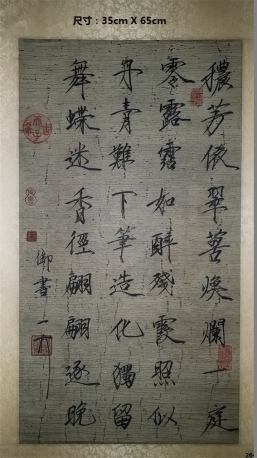 尺寸：35cm X 65cm
穠芳依翠萼焕爛一庭
零露霑如醉殘霞照似
丹青難下筆造化獨留
舞蝶迷香徑翩翩逐晚
御書